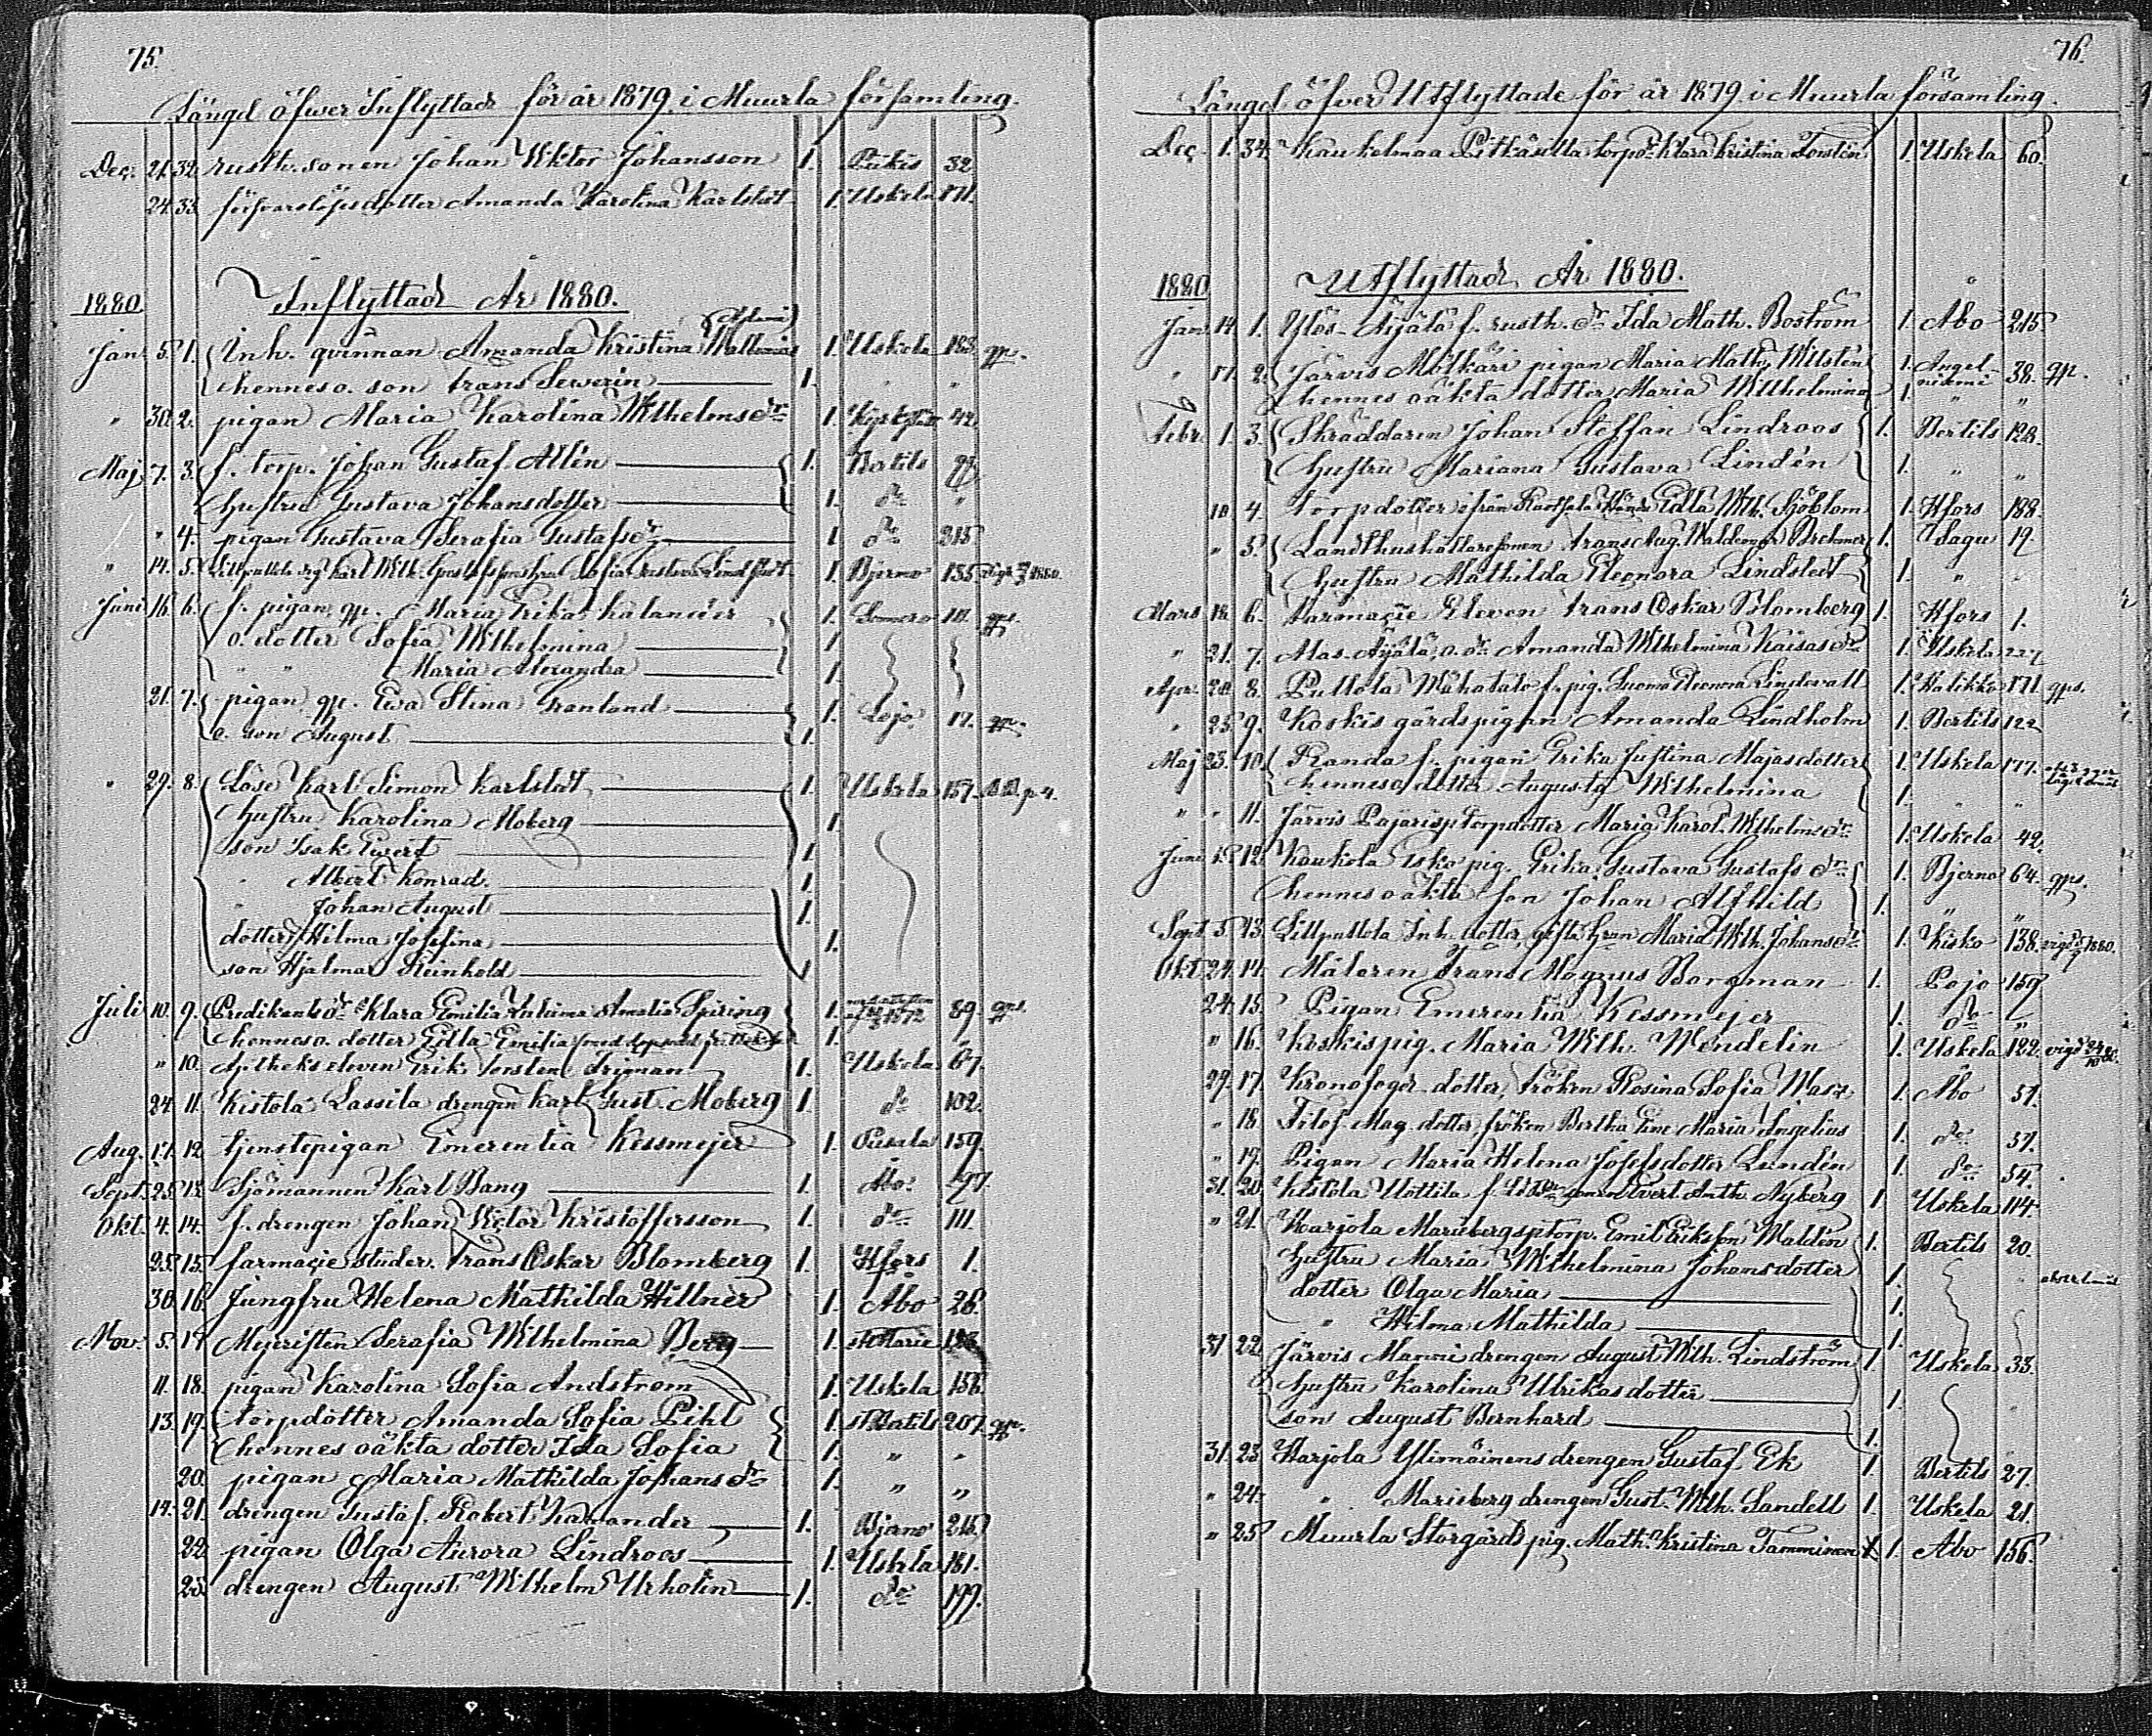 75.
Längd öfwer Inflyttade för år 1879 i Muurla församling.
Dec. 21. 32. rusth. sonen Johan Wiktor Johansson 1. Piikis 32
24. 33. försvarslösesdotter Amanda Karolina Karlstedt 1. Uskela 171.
1880. Inflyttade År 1880.
Jan. 5. 1. Inh. qvinnan Amanda Kristina 1. Uskela 183. qp.
hennes o. son Frans Sewerin 1. " "
" 30. 2. pigan Maria Karolina Wilhelmsdr 1. 42.
Maj 7. 3. f. torp. Johan Gustaf Allén 1. Bertils
hustru Gustava Johansdotter 1. do "
" 4. pigan Gustava Serafia Gustafsdr 1. do 215
" 14. 5. Lillpaltola Karl Wilh. Gustafssons hru Sofia Gustava Lindstedt 1. Bjerno 135 1880.
Juni 16. 6. f. pigan, qp. Maria Erika Kalander 1. Sommero 111. qps.
o. dotter Sofia Wilhelmina 1.
" " Maria Alexandra 1.
21. 7. pigan qp. Ewa Stina Granlund 1. Lojo 17. qp.
o. son August 1.
" 29. 8. Löse Karl Simon Karlstedt 1. Uskela 157. p 4.
hustru Karolina Moberg 1.
son Isak Evert 1.
" Albert Konrad. 1.
" Johan August 1.
dotter Hilma Josefina 1.
son Hjalmar Reinhold 1.
Juli 10. 9. Predikantsdr Klara Emilia Amalia Spiring 1. 1872 89. qps.
hennes o. dotter Edla Emilia 1. "
" 10. Apotheks eleven Erik Torsten Friman 1. Uskela 67.
24. 11. Kistola Lassila drengen Karl Gust. Moberg 1. do 102.
Aug. 17. 12. tjenstepigan Emerentia Kessmejer 1. Pusala 159.
Sept. 25. 13. Sjömannen Karl Bang 1. Åbo. 97.
Okt. 4. 14. f. drengen Johan Victor Kristoffersson 1. do 111.
25. 15. farmacie studer. Frans Oskar Blomberg 1. Hfors 1.
30. 16. Jungfru Helena Mathilda Hillner 1. Åbo 26.
Nov. 5. 17. Mejeristen Serafia Wilhelmina Berg 1. St Marie
11. 18. pigan Karolina Sofia Andström 1. Uskela 156.
13. 19. torpdotter Amanda Sofia Pihl 1. St Bertils 207. qp.
hennes oäkta dotter Ida Sofia 1. " "
20. pigan Maria Mathilda Johansdr 1. " "
14. 21. drengen Gustaf Robert Kavander 1. Bjerno 215.
22. pigan Olga Aurora Lindroos 1. Uskela 181.
23. drengen August Wilhelm Urholin 1. do 199.
76.
Längd öfver Utflyttade för år 1879 i Muurla församling.
Dec. 1. 34. Kaukelmaa Pitkäsilta torpdr Klara Kristina Torstén 1. Uskela 60.
1880 Utflyttade År 1880.
Jan. 14. 1. Ylös-Äijälä f. rusth. dr Ida Math. Boström 1. Åbo 215
" 17. 2. Järvis Mölkäri pigan Maria Math. Wilstén 1. Angelniemi 38. qp.
hennes oäkta dotter Maria Wilhelmina 1. " "
Febr. 1. 3. Skräddaren Johan Steffan Lindroos 1. Bertils 128.
hustru Mariana Gustava Lindén 1. " "
10. 4. Torpdotter ifrån Edla Wilh. Sjöblom 1. Hfors 188.
" 5. Landthushållaresonen Frans Aug. Waldemar Brehmer 1. Sagu 19.
hustru Mathilda Eleonora Lindstedt 1. " "
Mars 18. 6. Farmacie Eleven Frans Oskar Blomberg 1. Hfors 1.
" 21. 7. Alas-Äijälä, o. dr Amanda Wilhelmina Kaisasdr 1. Uskela 227
Apr. 20. 8. Pullola Mähätalo f. pig. Suoma Eleonora Lindevall 1. Halikko 171. qps.
" 25. 9. Koskis gårds pigan Amanda Lindholm 1. Bertils 122
Maj 23. 10. Randa f. pigan Erika Justina Majasdotter 1. Uskela 177.
hennes o. dotter Augusta Wilhelmina 1. " "
" " 11. Järvis Pajarisp. torpdotter Maria Karol. Wilhelmsdr 1. Uskela 42.
Juni 1. 12. Kaukola Isko pig. Erika Gustava Gustafsdr 1. Bjerno 64. qps.
hennes oäkta son Johan Alfhild 1. " "
Sept. 5. 13. Lillpaltola Inh. dotter, gifta hrun Maria Wilh. Johansdr 1. Kisko 138. vigd 1880.
Okt. 24. 14. Målaren Frans Magnus Borgman 1. Pojo 159
24. 15. Pigan Emerentia Kessmejer 1. do "
" 16. Koskis pig. Maria Wilh. Wendelin 1. Uskela 122. vigd
29. 17. Kronofogde dotter, fröken Rosina Sofia Wasz 1. Åbo 51.
" 18. Filos. Mag. dotter fröken Bertha Line Maria Ingelius 1. do 51.
" 19. Pigan Maria Helena Josefsdotter Lundén 1. do 54.
31. 20. Kistola Uottila f. sonen Evert Anth. Nyberg 1. Uskela 114.
" 21. Karjola Mariebergs torp. Emil Eriksson Waldén 1. Bertils 20.
hustru Maria Wilhelmina Johansdotter 1.
dotter Olga Maria 1.
" Hilma Mathilda 1.
31. 22. Järvis Mammi drengen August Wilh. Lindström 1. Uskela 33.
hustru Karolina Ulrikasdotter 1.
son August Bernhard 1.
31. 23. Karjola Ylimäinens drengen Gustaf Ek 1. Bertils 27.
" 24. " Marieberg drengen Gust. Wilh. Sandell 1. Uskela 21.
" 25. Muurla Storgårds pig. Math. Kristina Tamminen 1. Åbo 156.